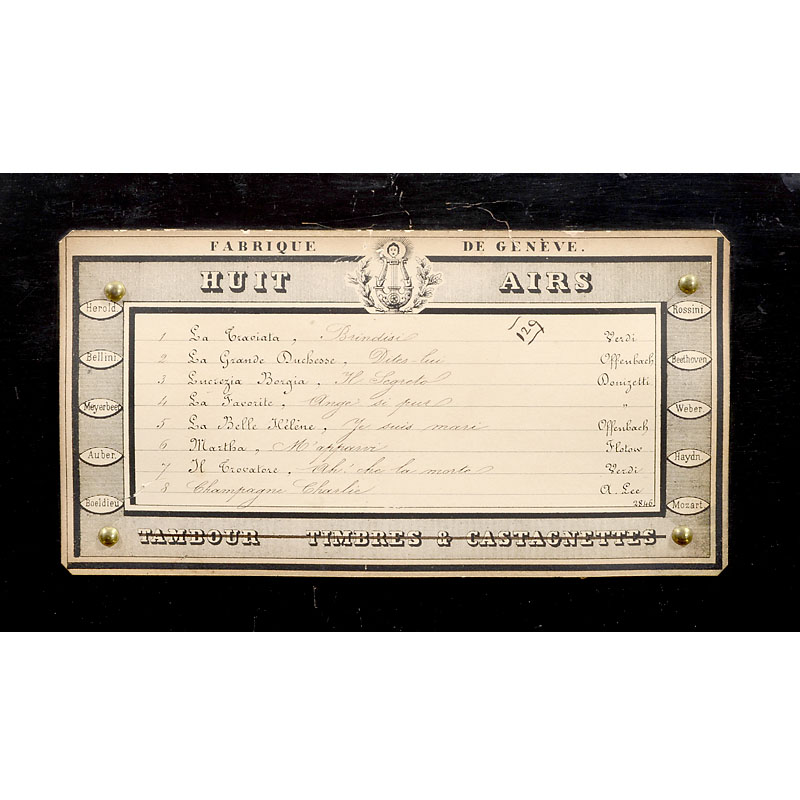 FABRIQUE DE GENÈVE.
HUIT AIRS
129
1 La Traviata, Brindisi Verdi
2 La Grande Duchesse, Dites-lui Offenbach
3 Lucrezia Borgia, Il Segreto Donizetti
4 La Favorite, Ange si pur "
5 La Belle Hélène, Je suis mari Offenbach
6 Martha, M'appari Flotow
7 Il Trovatore, Ah! che la morte Verdi
8 Champagne Charlie A. Lee
2846.
Herold
Bellini
Meyerbeer
Auber.
Boeldieu
Rossini.
Beethoven
Weber.
Haydn.
Mozart.
TAMBOUR TIMBRES & CASTAGNETTES